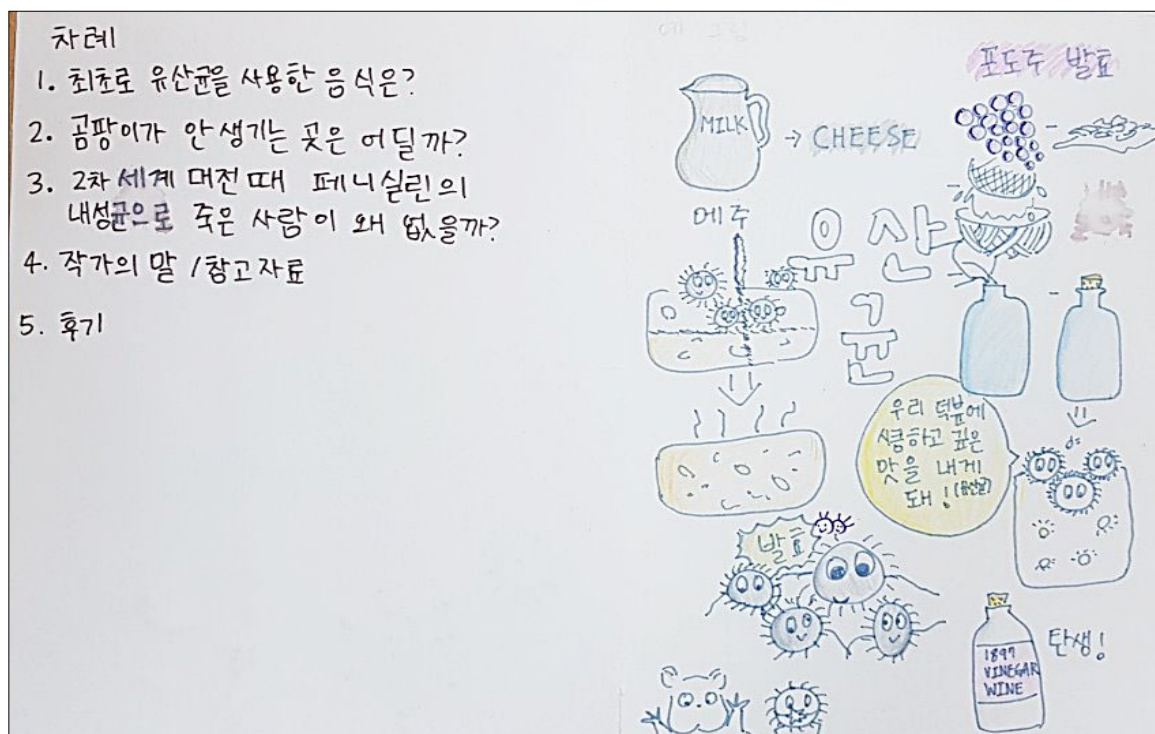 차례
1. 최초로 유산균을 사용한 음식은?
2. 곰팡이가 안 생기는 곳은 어딜까?
3. 2차 세계 대전 때 페니실린의
내성균으로 죽은 사람이 왜 없을까?
4. 작가의 말 / 참고자료
5. 후기
포도주 발효
MILK
→ CHEESE
메주
유산
균
우리 덕분에
시큼하고 깊은
맛을 내게
돼!
발효
1897
VINEGAR
WINE
탄생!